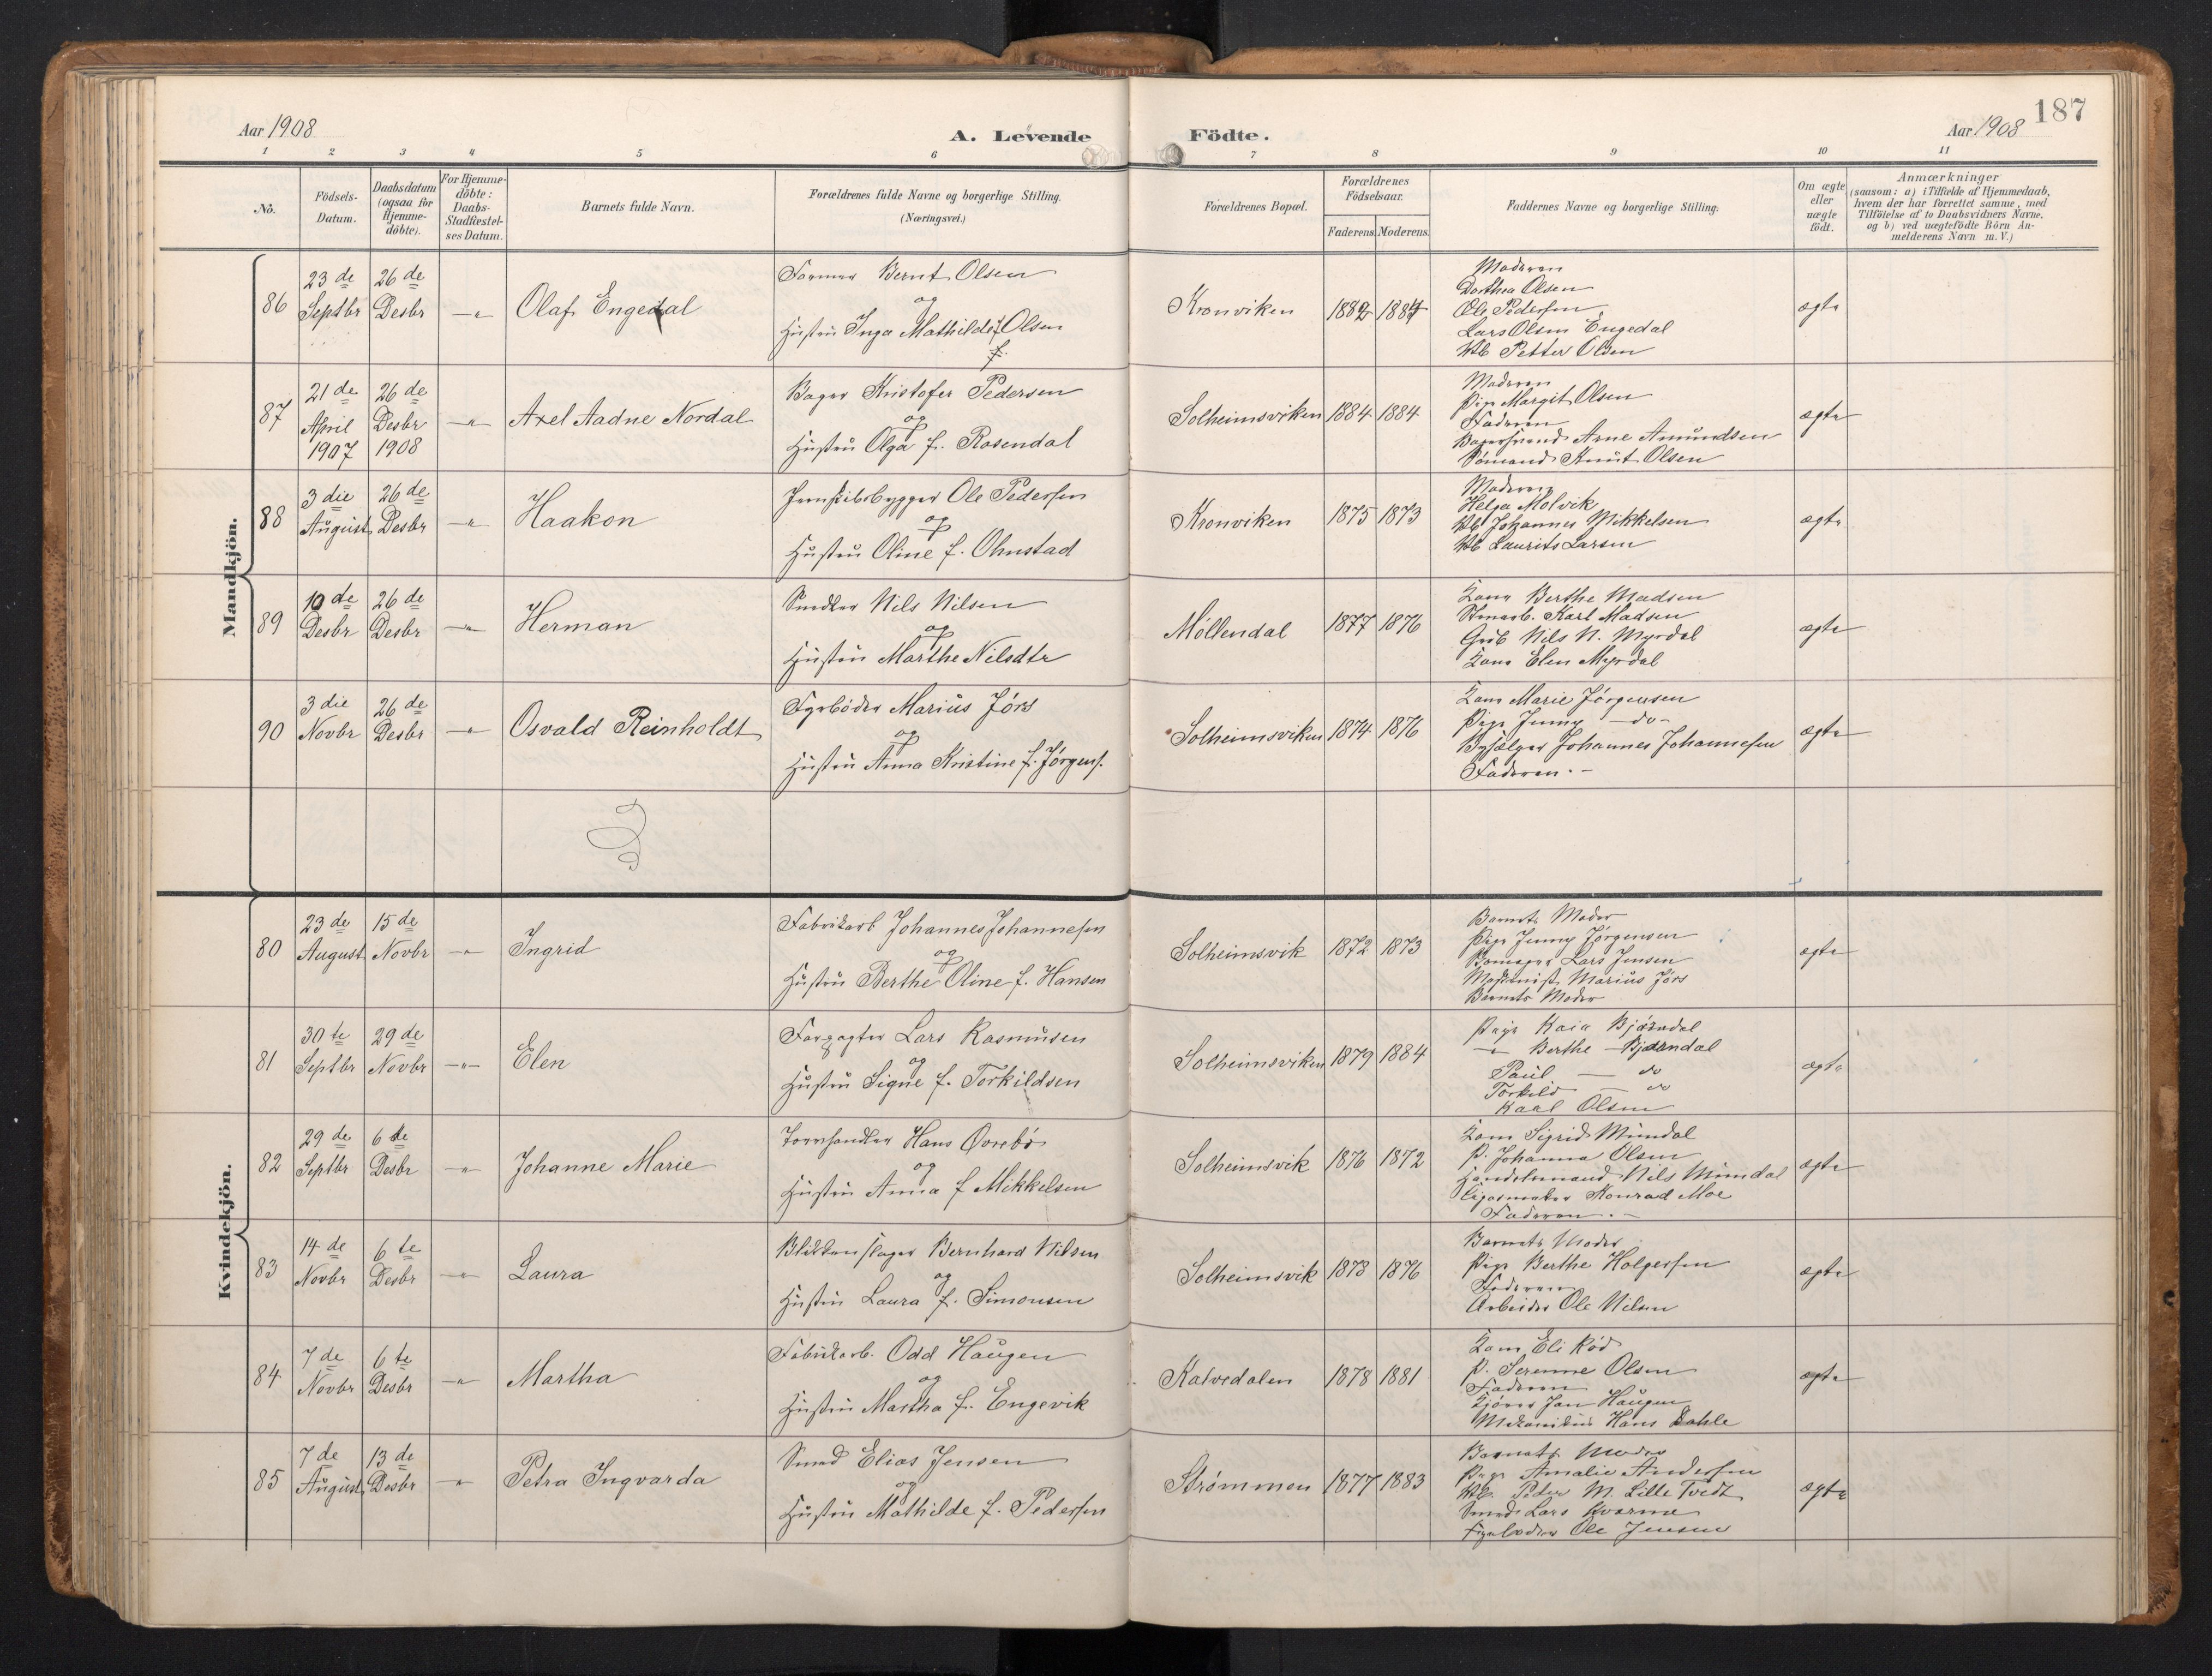 Aar 1908
A. Levende Födte.
187
Aar 1908
1 2 3 4 5 6 7 8 9 10 11
No.
Födsels-
Datum.
Daabsdatum
(ogsaa for
Hjemme-
döbte).
For Hjemme-
döbte:
Daabs-
Stadfæstel-
ses Datum.
Barnets fulde Navn.
Forældrenes fulde Navne og borgerlige Stilling.
(Næringsvei.)
Forældrenes Bopæl.
Forældrenes
Födselsaar.
Faderens. Moderens.
Faddernes Navne og borgerlige Stilling.
Om ægte
eller
uægte
födt.
Anmærkninger
(saasom: a) i Tilfælde af Hjemmedaab,
hvem der har forrettet samme, med
Tilföielse af to Daabsvidners Navne,
og b) ved uægtefödte Börn An-
melderens Navn m. V.)
Mandkjön.
86
23 de
Septbr
26 de
Desbr
-"-
Olaf Engedal
Former Bernt Olsen
og
Hustru Inga Mathilde f. Olsen
Kronviken
1882 1884
Moderen
Dorthea Olsen
Ole Pedersen
Lars Olsen Engedal
Petter Olsen
ægte
87
21 de
April
1907
26 de
Desbr
1908
-"-
Axel Aadne Nordal
Bager Kristofer Pedersen
og
Hustru Olga f. Rosendal
Solheimsviken
1884 1884
Moderen
Pige Margit Olsen
Faderen
Bagersvend Arne Amundsen
Sömand Knut Olsen
ægte
88
3 die
August
26 de
Desbr
-"-
Haakon
Jernskibsbygger Ole Pedersen
og
Hustru Oline f. Ohnstad
Kronviken
1875 1873
Moderen
Helga Molvik
Johannes Mikkelsen
Laurits Larsen
ægte
89
10 de
Desbr
26 de
Desbr
-"-
Herman
Snedker Nils Nilsen
og
Hustru Marthe Nilsdtr
Möllendal
1877 1876
Kone Berthe Madsen
Karl Madsen
Nils N. Myrdal
Kone Elen Myrdal
ægte
90
3 die
Novbr
26 de
Desbr
-"-
Osvald Reinholdt
Fyrböder Marius Jörs
og
Hustru Anna Kristine f. Jörgens.
Solheimsviken
1874 1876
Kone Marie Jörgensen
Pige Jenny - do -
Johannes Johannesen
Faderen.-
ægte
Kvindekjön.
80
23 de
August
15 de
Novbr
-"-
Ingrid
Fabrikarb Johannes Johannesen
og
Hustru Berthe Oline f. Hansen
Solheimsvik
1872 1873
Barnets Moder
Pige Jenny Jörgensen
Lars Jensen
Maskinist Marius Jörs
Barnets Moder
ægte
81
30 te
Septbr
29 de
Novbr
-"-
Elen
Forpagter Lars Rasmusen
og
Hustru Signe f. Torkildsen
Solheimsviken
1879 1884
Pige Kaia Bjørndal
-"- Berthe Bjørndal
Paul - do
Torkild - do
Karl Olsen
ægte
82
29 de
Septbr
6 te
Desbr
-"-
Johanne Marie
Torvhandler Hans Øvrebö
og
Hustru Anna f Mikkelsen
Solheimsvik
1876 1872
Kone Sigrid Mundal
P. Johanna Olsen
Handelsmand Nils Mundal
Cigarmaker Konrad Moe
Faderen.-
ægte
83
14 de
Novbr
6 te
Desbr
-"-
Laura
Blikkenslager Bernhard Nilsen
og
Hustru Laura f. Simonsen
Solheimsvik
1873 1876
Barnets Moder
Pige Berthe Holgersen
Faderen
Arbeider Ole Nilsen
ægte
84
7 de
Novbr
6 te
Desbr
-"-
Martha
Fabrikarb. Odd Haugen
og
Hustru Martha f. Engevik
Kalvedalen
1878 1881
Kone Eli Rød
P. Serenne Olsen
Faderen
Jan Haugen
Mekanikus Hans Dahle
ægte
85
7 de
August
13 de
Desbr
-"-
Petra Ingvarda
Smed Elias Jensen
og
Hustru Mathilde f. Pedersen
Strømmen
1877 1883
Barnets Moder
Pige Amalie Andersen
Peder M. Lille Tvedt
Smed Lars Kvarme
Ole Jensen
ægte